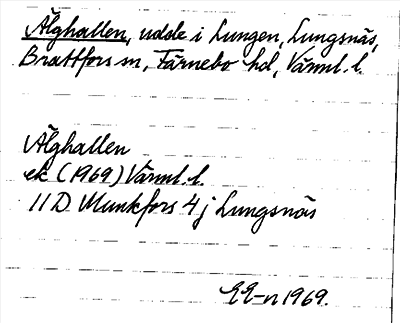 Älghallen, udde i Lungen, Lungsnäs,
Brattfors sn, Färnebo hd, Värml. l.
Älghallen
ek (1969) Värml. l.
11 D Munkfors 4 j Lungsnäs
EE-n 1969.